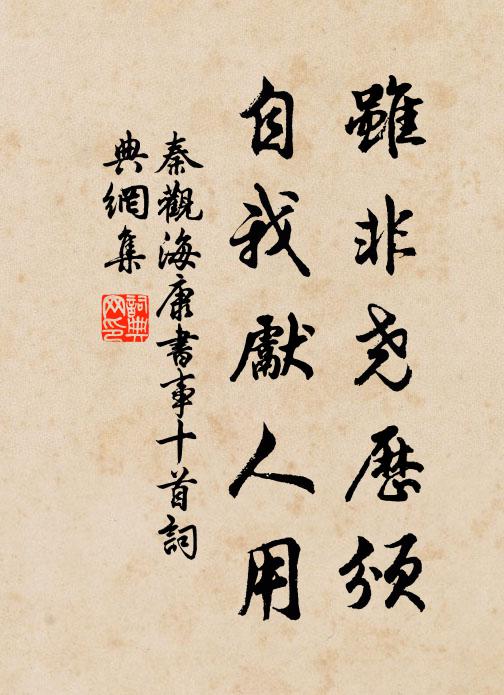 雖非堯歷頒
自我獻人用
秦觀海康書事十首詞
典網集
詞典
网印